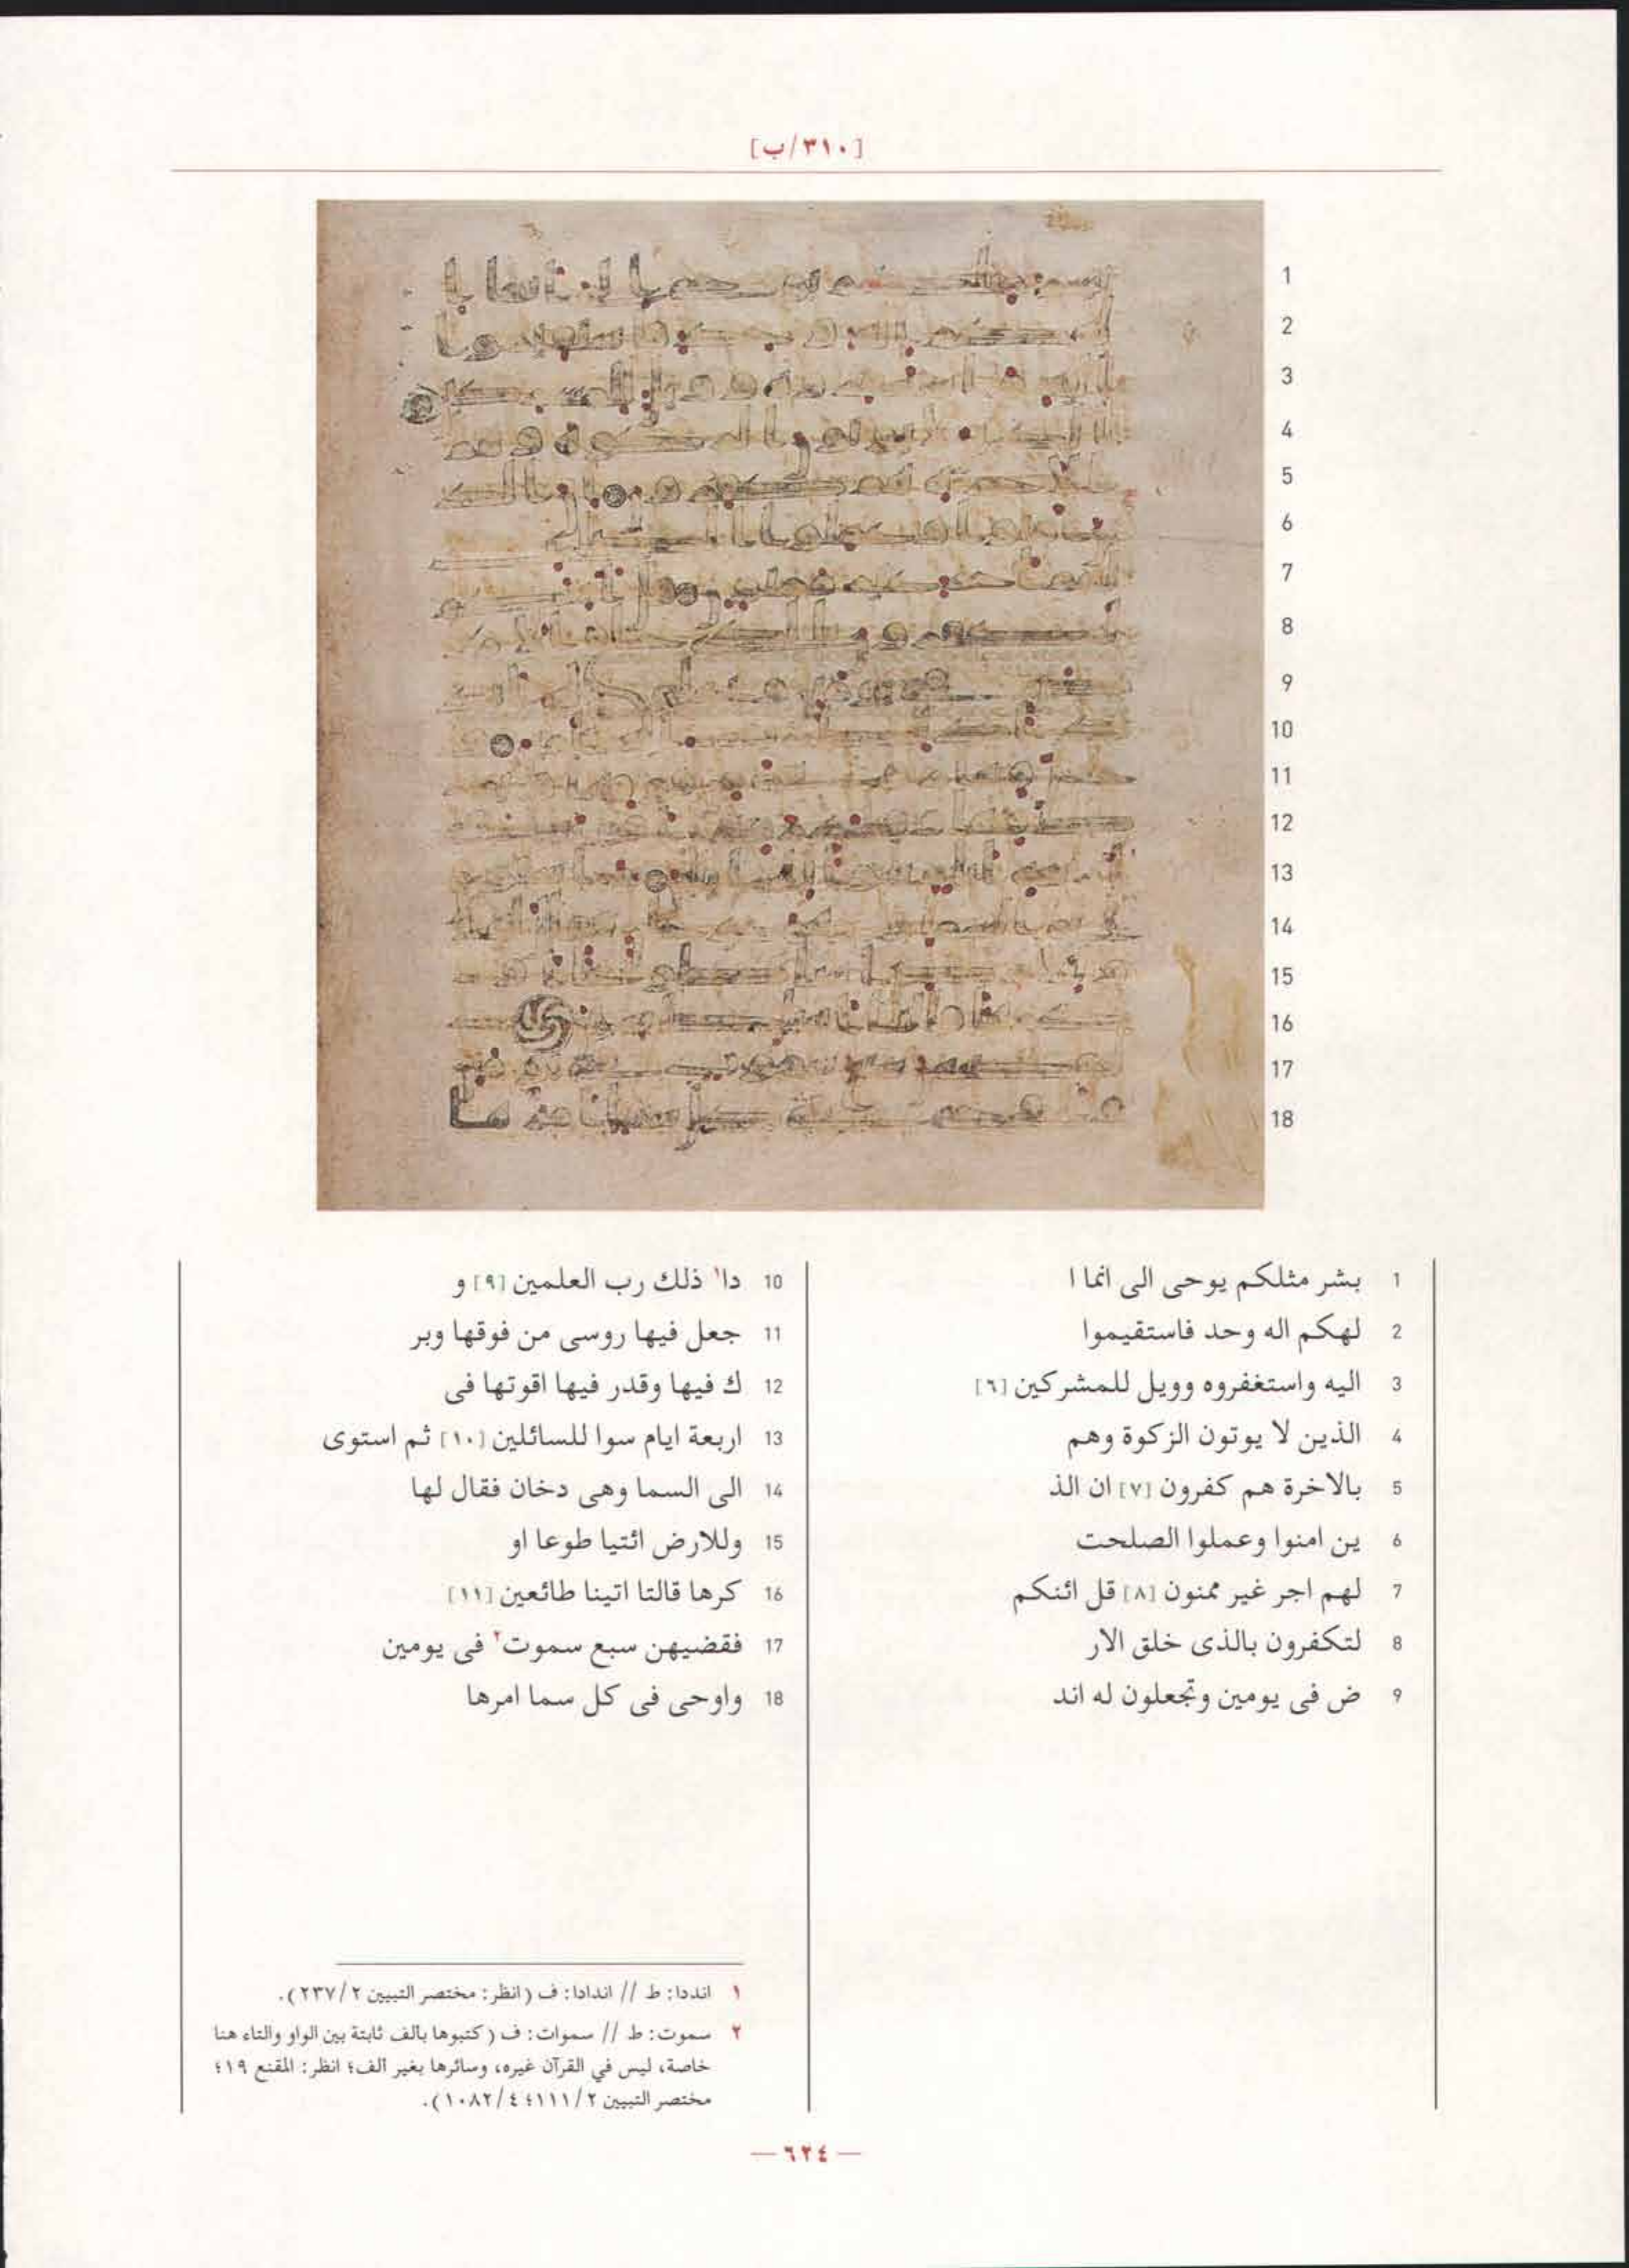 [٣١٠/ب]
1 بشر مثلكم يوحى الى انما ا
2 لهكم اله وحد فاستقيموا
3 اليه واستغفروه وويل للمشركين [٦]
4 الذين لا يوتون الزكوة وهم
5 بالاخرة هم كفرون [٧] ان الذ
6 ين امنوا وعملوا الصلحت
7 لهم اجر غير ممنون [٨] قل ائنكم
8 لتكفرون بالذى خلق الار
9 ض فى يومين وتجعلون له اند
10 دا١ ذلك رب العلمين [٩] و
11 جعل فيها روسى من فوقها وبر
12 ك فيها وقدر فيها اقوتها فى
13 اربعة ايام سوا للسائلين [١٠] ثم استوى
14 الى السما وهى دخان فقال لها
15 وللارض ائتيا طوعا او
16 كرها قالتا اتينا طائعين [١١]
17 فقضيهن سبع سموت٢ فى يومين
18 واوحى فى كل سما امرها
١ انددا: ط // اندادا: ف (انظر: مختصر التبيين ٢/٢٣٧).
٢ سموت: ط // سموات: ف (كتبوها بالف ثابتة بين الواو والتاء هنا
خاصة، ليس في القرآن غيره، وسائرها بغير ألف؛ انظر: المقنع ١٩؛
مختصر التبيين ٢/١١١؛ ٤/١٠٨٢).
— ٦٢٤ —